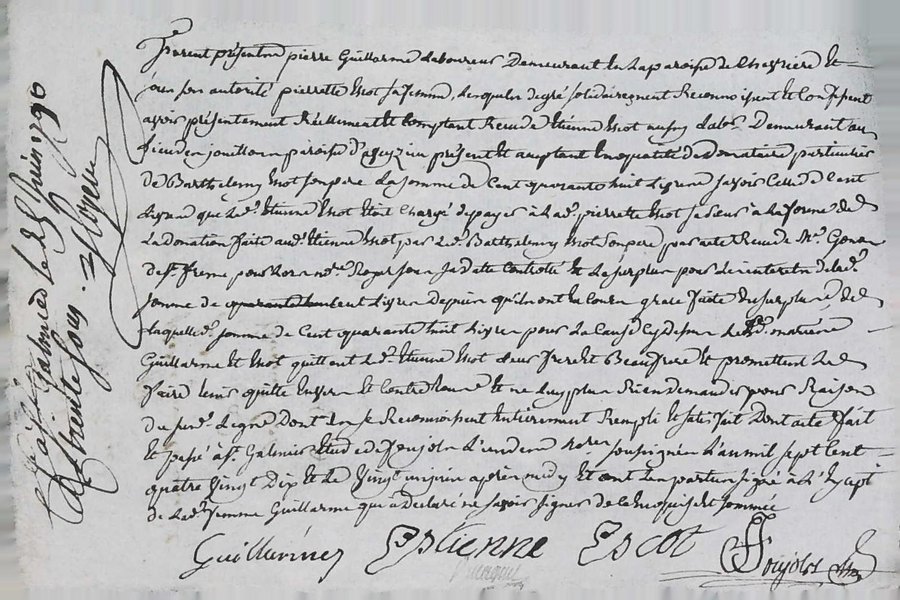 furent présents pierre Guillarme Laboureur Demeurant En La paroisse de Chevrière Et
sous son autorité pierrette Escot sa femme, Lesquels de gré solidairement Reconnoissent Et Confessent
avoir présentement Réellement Et Comptant Reçu de Etienne Escot aussy Labor. Demeurant au
Lieu de jouillon paroisse d'aveyzieu présent Et acceptant En qualité de donataire particulier
de Barthelemy Escot son pere La somme de Cent quarante huit Livres savoir Celle de Cent
Livres que Led. Etienne Escot Etoit Chargé de payer à Lad. pierrette Escot sa sœur à La forme de
La donation faite aud. Etienne Escot par Led. Barthelemy Escot son pere par acte Reçu de Me. Gonon
de St. pour Lors no.re Royal sous sa datte Controlé Et Le surplus pour Les interets de lad.
somme de Cent Livres depuis qu'ils ont En Cours grace faite du surplus de
laquelle d. somme de Cent quarante huit Livres pour La Cause Cy dessus Lesd. mariés
Guillarme Et Escot quittent Led. Etienne Escot Leur frere Et Beaufrere Et promettent Le
faire tenir quitte Envers Et Contre tous Et ne Luy plus Rien demander pour Raison
du sus d. Legs Dont ils se Reconnoissent Entierement Remplis Et satisfait Dont acte fait
Et passé à St. Galmier Etude de Joujolx L'un des nores. soussignés L'an mil sept Cent
quatre Vingt Dix Et Le Vingt un juin après midy Et ont Les parties signé à L'Except
de Lad. femme Guillarme qui a Declaré ne savoir signer de Ce Enquise Et sommée
Guillarme Estienne Escot Joujolx
à St. Galmier Le 25 Juin 1790
trente sous